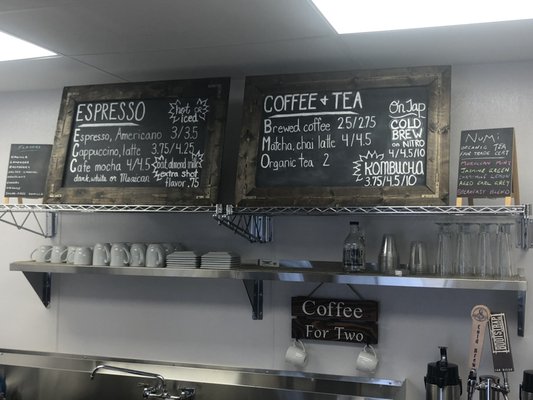 FLAVORS
VANILLA
ESPRESSO
hot or
iced
Espresso, Americano 3/3.5
Cappuccino, latte 3.75/4.25
Cafe mocha 4/4.5
dark, white or Mexican
oat, almond milk
+extra shots
flavor .75
COFFEE + TEA
Brewed coffee 2.5/2.75
Matcha, chai latte 4/4.5
Organic tea 2
On Tap
COLD
BREW
on NITRO
4/4.5/10
KOMBUCHA
3.75/4/10
NUMI
ORGANIC TEA
FAIR TRADE CERT
MOROCCAN MINT
JASMINE GREEN
AGED EARL GREY
BREAKFAST BLEND
Coffee
For Two
EPIC
BOOTSTRAP